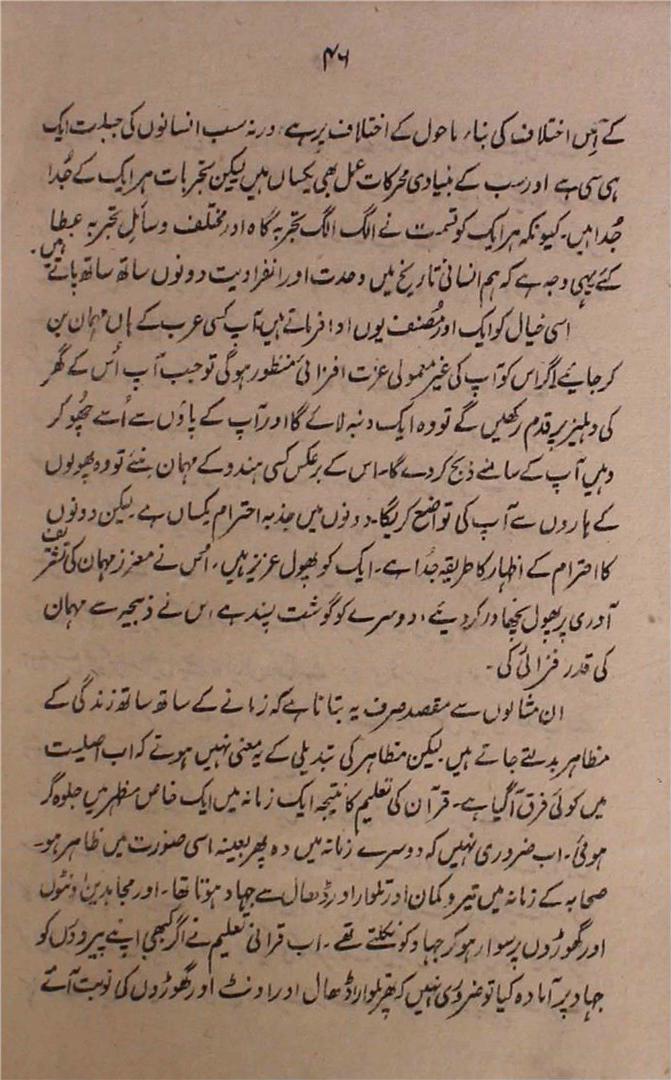 ۴۶
کے اس اختلاف کی بناء ماحول کے اختلاف پر ہے، ورنہ سب انسانوں کی جبلت ایک
ہی سی ہے اور سب کے بنیادی محرکات عمل بھی یکساں ہیں لیکن تجربات ہر ایک کے جُدا
جُدا ہیں۔ کیونکہ ہر ایک کو قسمت نے الگ الگ تجربہ گاہ اور مختلف وسائلِ تجربہ عطا
کئے یہی وجہ ہے کہ ہم انسانی تاریخ میں وحدت اور انفرادیت دونوں ساتھ ساتھ پاتے ہیں۔
اسی خیال کو ایک اور مُصنف یوں ادا فرماتے ہیں آپ کسی عرب کے ہاں مہمان بن
کر جایئے اگر اس کو آپ کی غیر معمولی عزت افزائی منظور ہوگی تو جب آپ اُس کے گھر
کی دہلیز پر قدم رکھیں گے تو وہ ایک دنبہ لائے گا اور آپ کے پاؤں سے اُسے چھو کر
وہیں آپ کے سامنے ذبح کردے گا۔ اس کے برعکس کسی ہندو کے مہمان بنئے تو وہ پھولوں
کے ہاروں سے آپ کی تواضع کریگا۔ دونوں میں جذبہ احترام یکساں ہے لیکن دونوں
کا احترام کے اظہار کا طریقہ جُدا ہے۔ ایک کو پھول عزیز ہیں، اُس نے معزز مہمان کی تشریف
آوری پر پھول نچھاور کر دیئے، دوسرے کو گوشت پسند ہے اس نے ذبیحہ سے مہمان
کی قدر افزائی کی۔
ان مثالوں سے مقصد صرف یہ بتانا ہے کہ زمانے کے ساتھ ساتھ زندگی کے
مظاہر بدلتے جاتے ہیں لیکن مظاہر کی تبدیلی کے یہ معنی نہیں ہوتے کہ اب اصلیت
میں کوئی فرق آگیا ہے۔ قرآن کی تعلیم کا نتیجہ ایک زمانہ میں ایک خاص مظہر میں جلوہ گر
ہوئی۔ اب ضروری نہیں کہ دوسرے زمانہ میں وہ پھر بعینہ اسی صورت میں ظاہر ہو۔
صحابہ کے زمانہ میں تیر و کمان اور تلوار اور ڈھال سے جہاد ہوتا تھا۔ اور مجاہدین اونٹوں
اور گھوڑوں پر سوار ہو کر جہاد کو نکلتے تھے۔ اب قرآنی تعلیم نے اگر کبھی اپنے پیرووں کو
جہاد پر آمادہ کیا تو ضروری نہیں کہ پھر تلوار ڈھال اور اونٹ اور گھوڑوں کی نوبت آئے